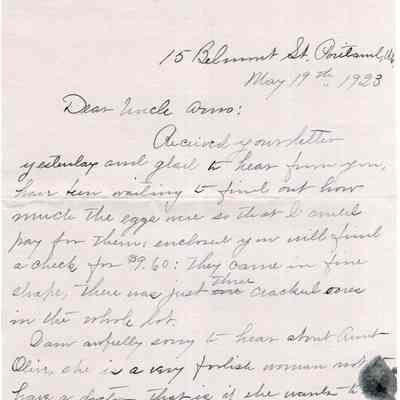 15 Belmont St. Portland, Me.
May 19th, 1923
Dear Uncle Amos:
Received your letter
yesterday and glad to hear from you,
have been waiting to find out how
much the eggs were so that I could
pay for them; enclosed you will find
a check for $9.60: They came in fine
shape, there was just three cracked ones
in the whole lot.
I am awfully sorry to hear about Aunt
Olive, she is a very foolish woman not to
have a doctor that is if she wants to